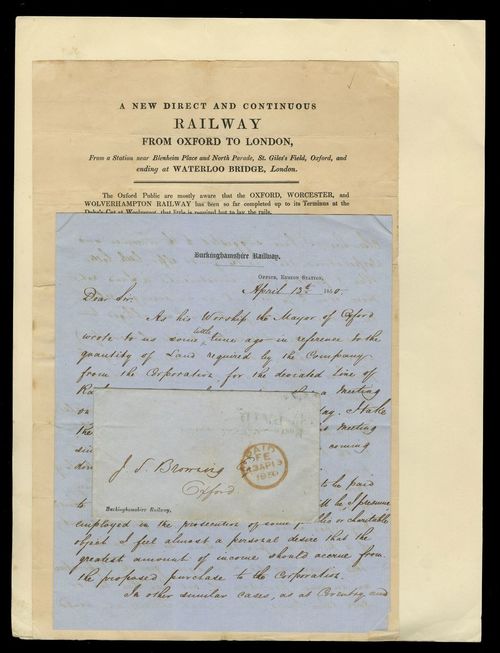 A NEW DIRECT AND CONTINUOUS
RAILWAY
FROM OXFORD TO LONDON,
From a Station near Blenheim Place and North Parade, St. Giles's Field, Oxford, and
ending at WATERLOO BRIDGE, London.
The Oxford Public are mostly aware that the OXFORD, WORCESTER, and
WOLVERHAMPTON RAILWAY has been so far completed up to its Terminus at the
Duke's Cut at Wolvercot, that little is required but to lay the rails.
Buckinghamshire Railway.
OFFICE, EUSTON STATION,
April 13th 1850.
Dear Sir
As his Worship the Mayor of Oxford
wrote to us some little time ago in reference to the
quantity of Land required by the Company
from the Corporation for the deviated line of
meeting
on
I take
the meeting
coming
PAID
1850
J. S. Browning
Oxford
Buckinghamshire Railway.
to be paid
to be, I presume
employed in the prosecution of some public or charitable
object I feel almost a personal desire that the
greatest amount of income should accrue from
the proposed purchase to the Corporation.
In other similar cases, as at Coventry and